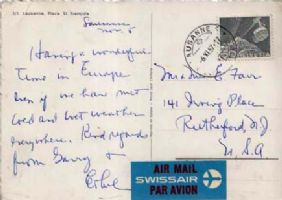 Lausanne, Place St. François
Lausanne
Nov. 5
Having a wonderful
time in Europe
even if we have met
cold and wet weather
everywhere. Kind regards
from Harry &
Ethel
LAUSANNE
HELVETIA
E. Farr
141 Irving Place
Rutherford, N.J
U.S.A
AIR MAIL
SWISSAIR
PAR AVION